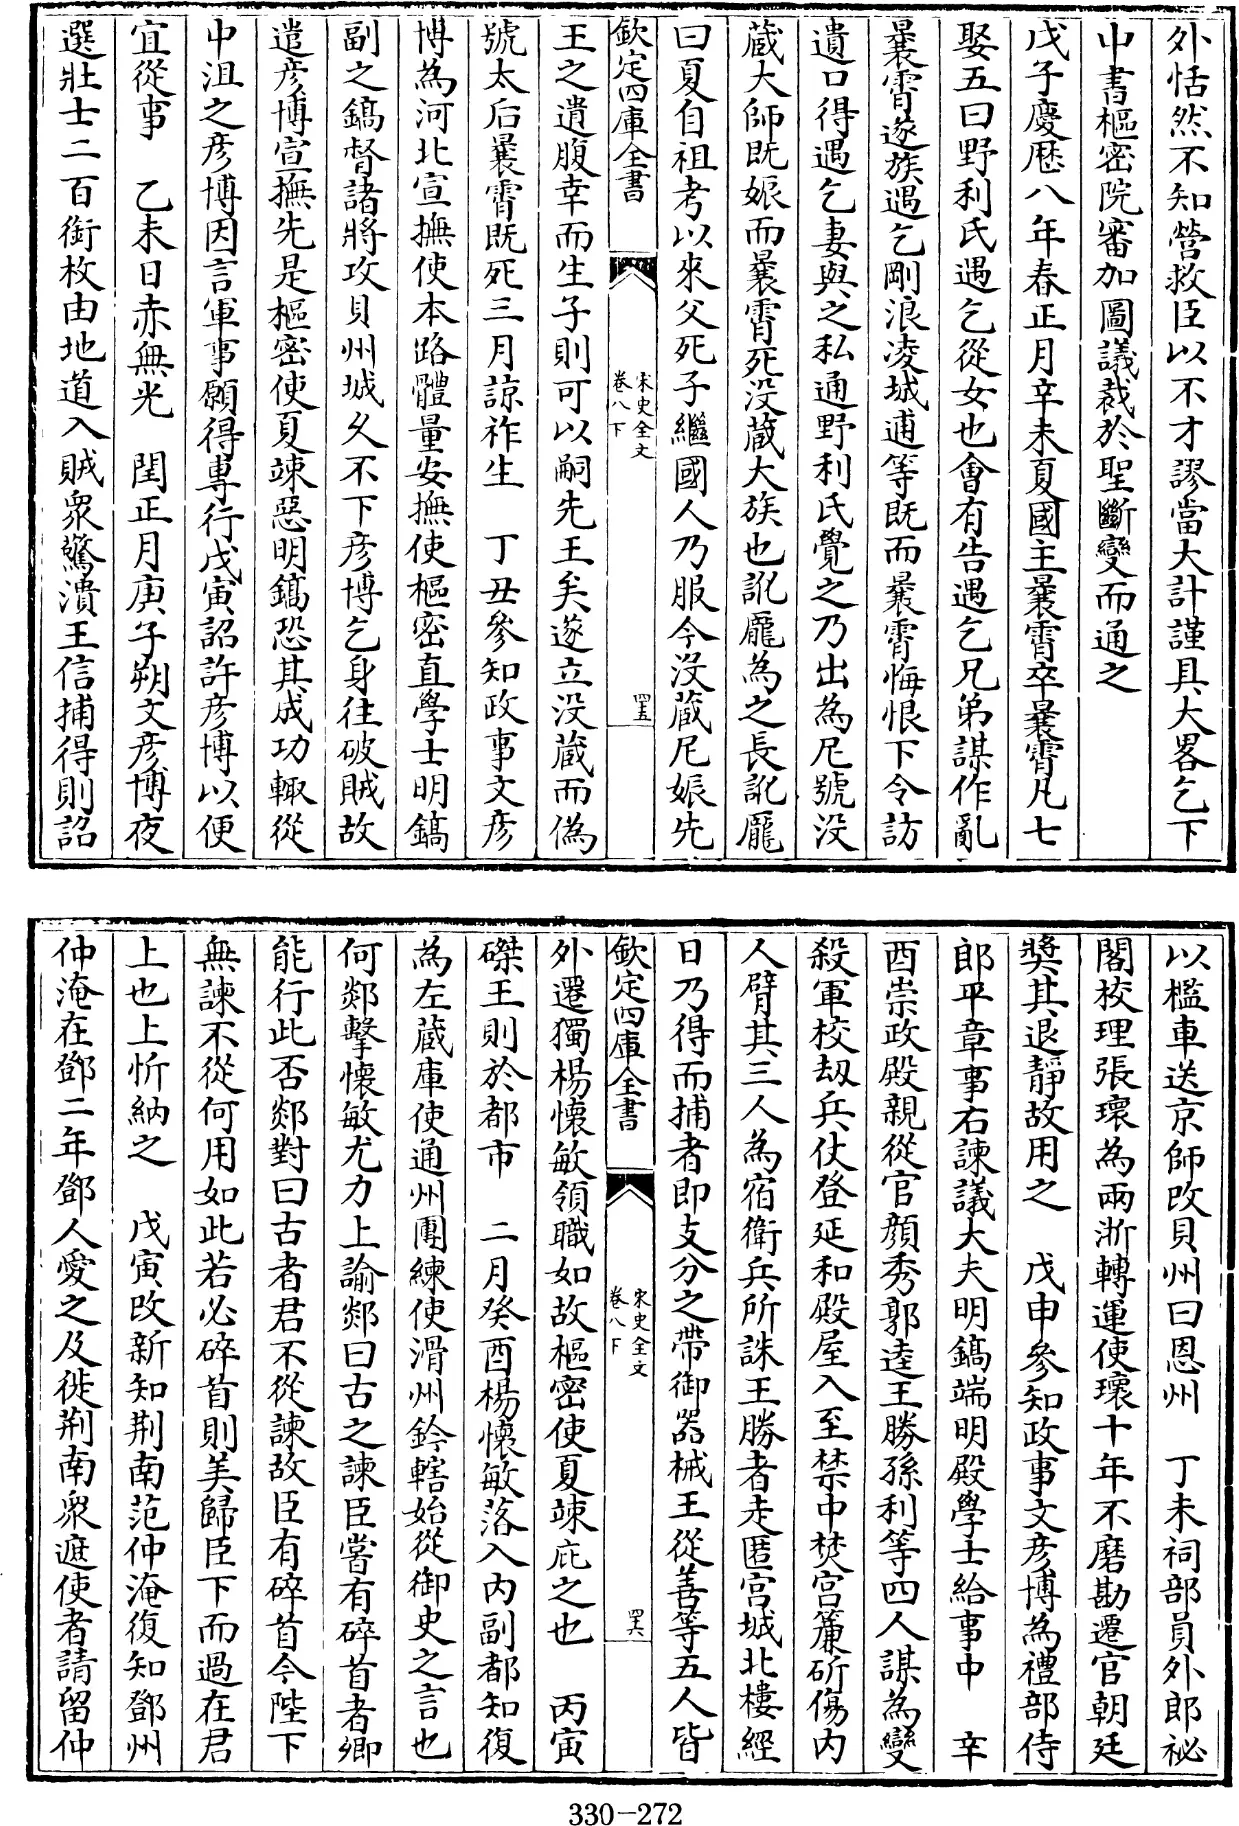 外恬然不知營救臣以不才謬當大計謹具大畧乞下
中書樞密院審加圖議裁於聖斷變而通之
戊子慶厯八年春正月辛未夏國主曩霄卒曩霄凡七
娶五曰野利氏遇乞從女也會有告遇乞兄弟謀作亂
曩霄遂族遇乞剛浪凌城逋等既而曩霄悔恨下令訪
遺口得遇乞妻與之私通野利氏覺之乃出為尼號没
藏大師既娠而曩霄死没藏大族也訛龐為之長訛龐
曰夏自祖考以來父死子繼國人乃服今没藏尼娠先
欽定四庫全書
宋史全文
卷八下
罜五
王之遺腹幸而生子則可以嗣先王矣遂立没藏而偽
號太后曩霄既死三月諒祚生　丁丑參知政事文彦
博為河北宣撫使本路體量安撫使樞密直學士明鎬
副之鎬督諸將攻貝州城久不下彦博乞身往破賊故
遣彦博宣撫先是樞密使夏竦惡明鎬恐其成功輙從
中沮之彦博因言軍事願得專行戊寅詔許彦博以便
宜從事　乙未日赤無光　閏正月庚子朔文彦博夜
選壯士二百銜枚由地道入賊衆驚潰王信捕得則詔
以檻車送京師改貝州曰恩州　丁未祠部員外郎祕
閣校理張瓌為兩浙轉運使瓌十年不磨勘遷官朝廷
奬其退靜故用之　戊申參知政事文彦博為禮部侍
郎平章事右諫議大夫明鎬端明殿學士給事中　辛
酉崇政殿親從官顔秀郭逵王勝孫利等四人謀為變
殺軍校劫兵仗登延和殿屋入至禁中焚宫簾斫傷内
人臂其三人為宿衛兵所誅王勝者走匿宫城北樓經
日乃得而捕者即支分之帶御器械王從善等五人皆
欽定四庫全書
宋史全文
卷八下
罜六
外遷獨楊懷敏領職如故樞密使夏竦庇之也　丙寅
磔王則於都市　二月癸酉楊懷敏落入内副都知復
為左藏庫使通州團練使滑州鈐轄始從御史之言也
何郯擊懷敏尤力上諭郯曰古之諫臣嘗有碎首者卿
能行此否郯對曰古者君不從諫故臣有碎首今陛下
無諫不從何用如此若必碎首則美歸臣下而過在君
上也上忻納之　戊寅改新知荆南范仲淹復知鄧州
仲淹在鄧二年鄧人愛之及徙荆南衆遮使者請留仲
330-272